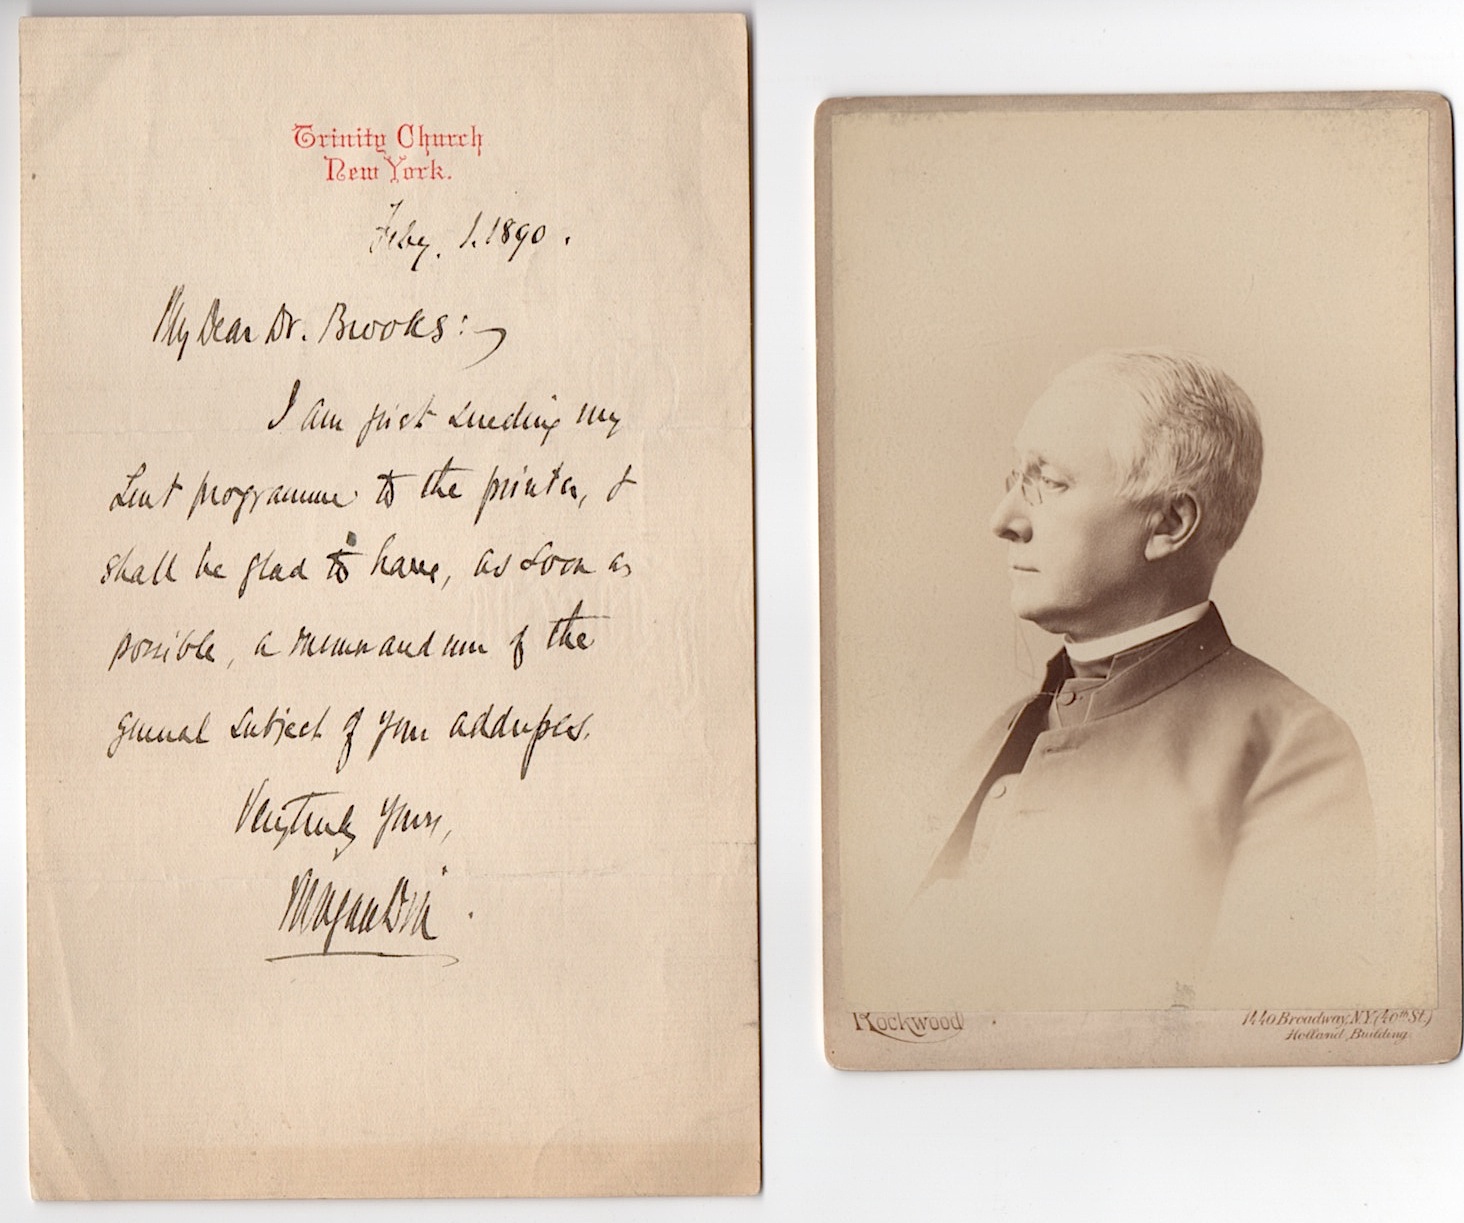 Trinity Church
New York.
Feby. 1. 1890.
My Dear Dr. Brooks:
I am just sending my
Lent programme to the printer, &
shall be glad to have, as soon as
possible, a memorandum of the
general subject of your addresses.
Very truly yours,
Morgan Dix.
Rockwood
1440 Broadway, N.Y. (40th St.)
Holland Building